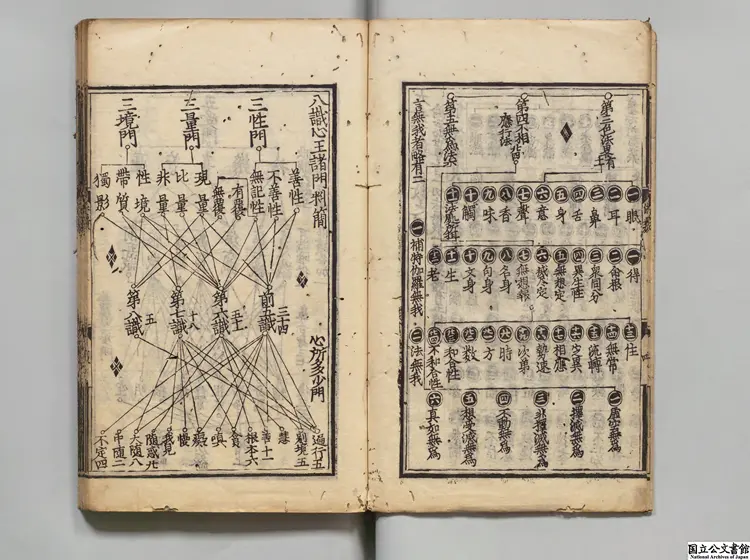 第三色法署有十一
第四不相應行法
第五無為法
言無我者略有二
一眼
二耳
三鼻
四舌
五身
六意
七聲
八香
九味
十觸
一得
二命根
三眾同分
四異生性
五無想定
六滅盡定
七無想報
八名身
九句身
十文身
十一生
十二老
十三住
十四無常
十五流轉
十六定異
十七相應
十八勢速
十九次第
二十時
方
數
和合性
不和合性
一虛空無為
二擇滅無為
三非擇滅無為
四不動無為
五想受滅無為
六真如無為
一補特伽羅無我
二法無我
八識心王諸門料簡
三性門
三量門
三境門
善性
不善性
無記性
有覆
無覆
現量
比量
非量
性境
帶質
獨影
前五識
三十四
第六識
五十一
第七識
十八
第八識
五
心所多少門
遍行五
別境五
慧
善十一
根本六
貪
嗔
癡
慢
我見
隨惑廿
大隨八
中隨二
不定四
国立公文書館
National Archives of Japan